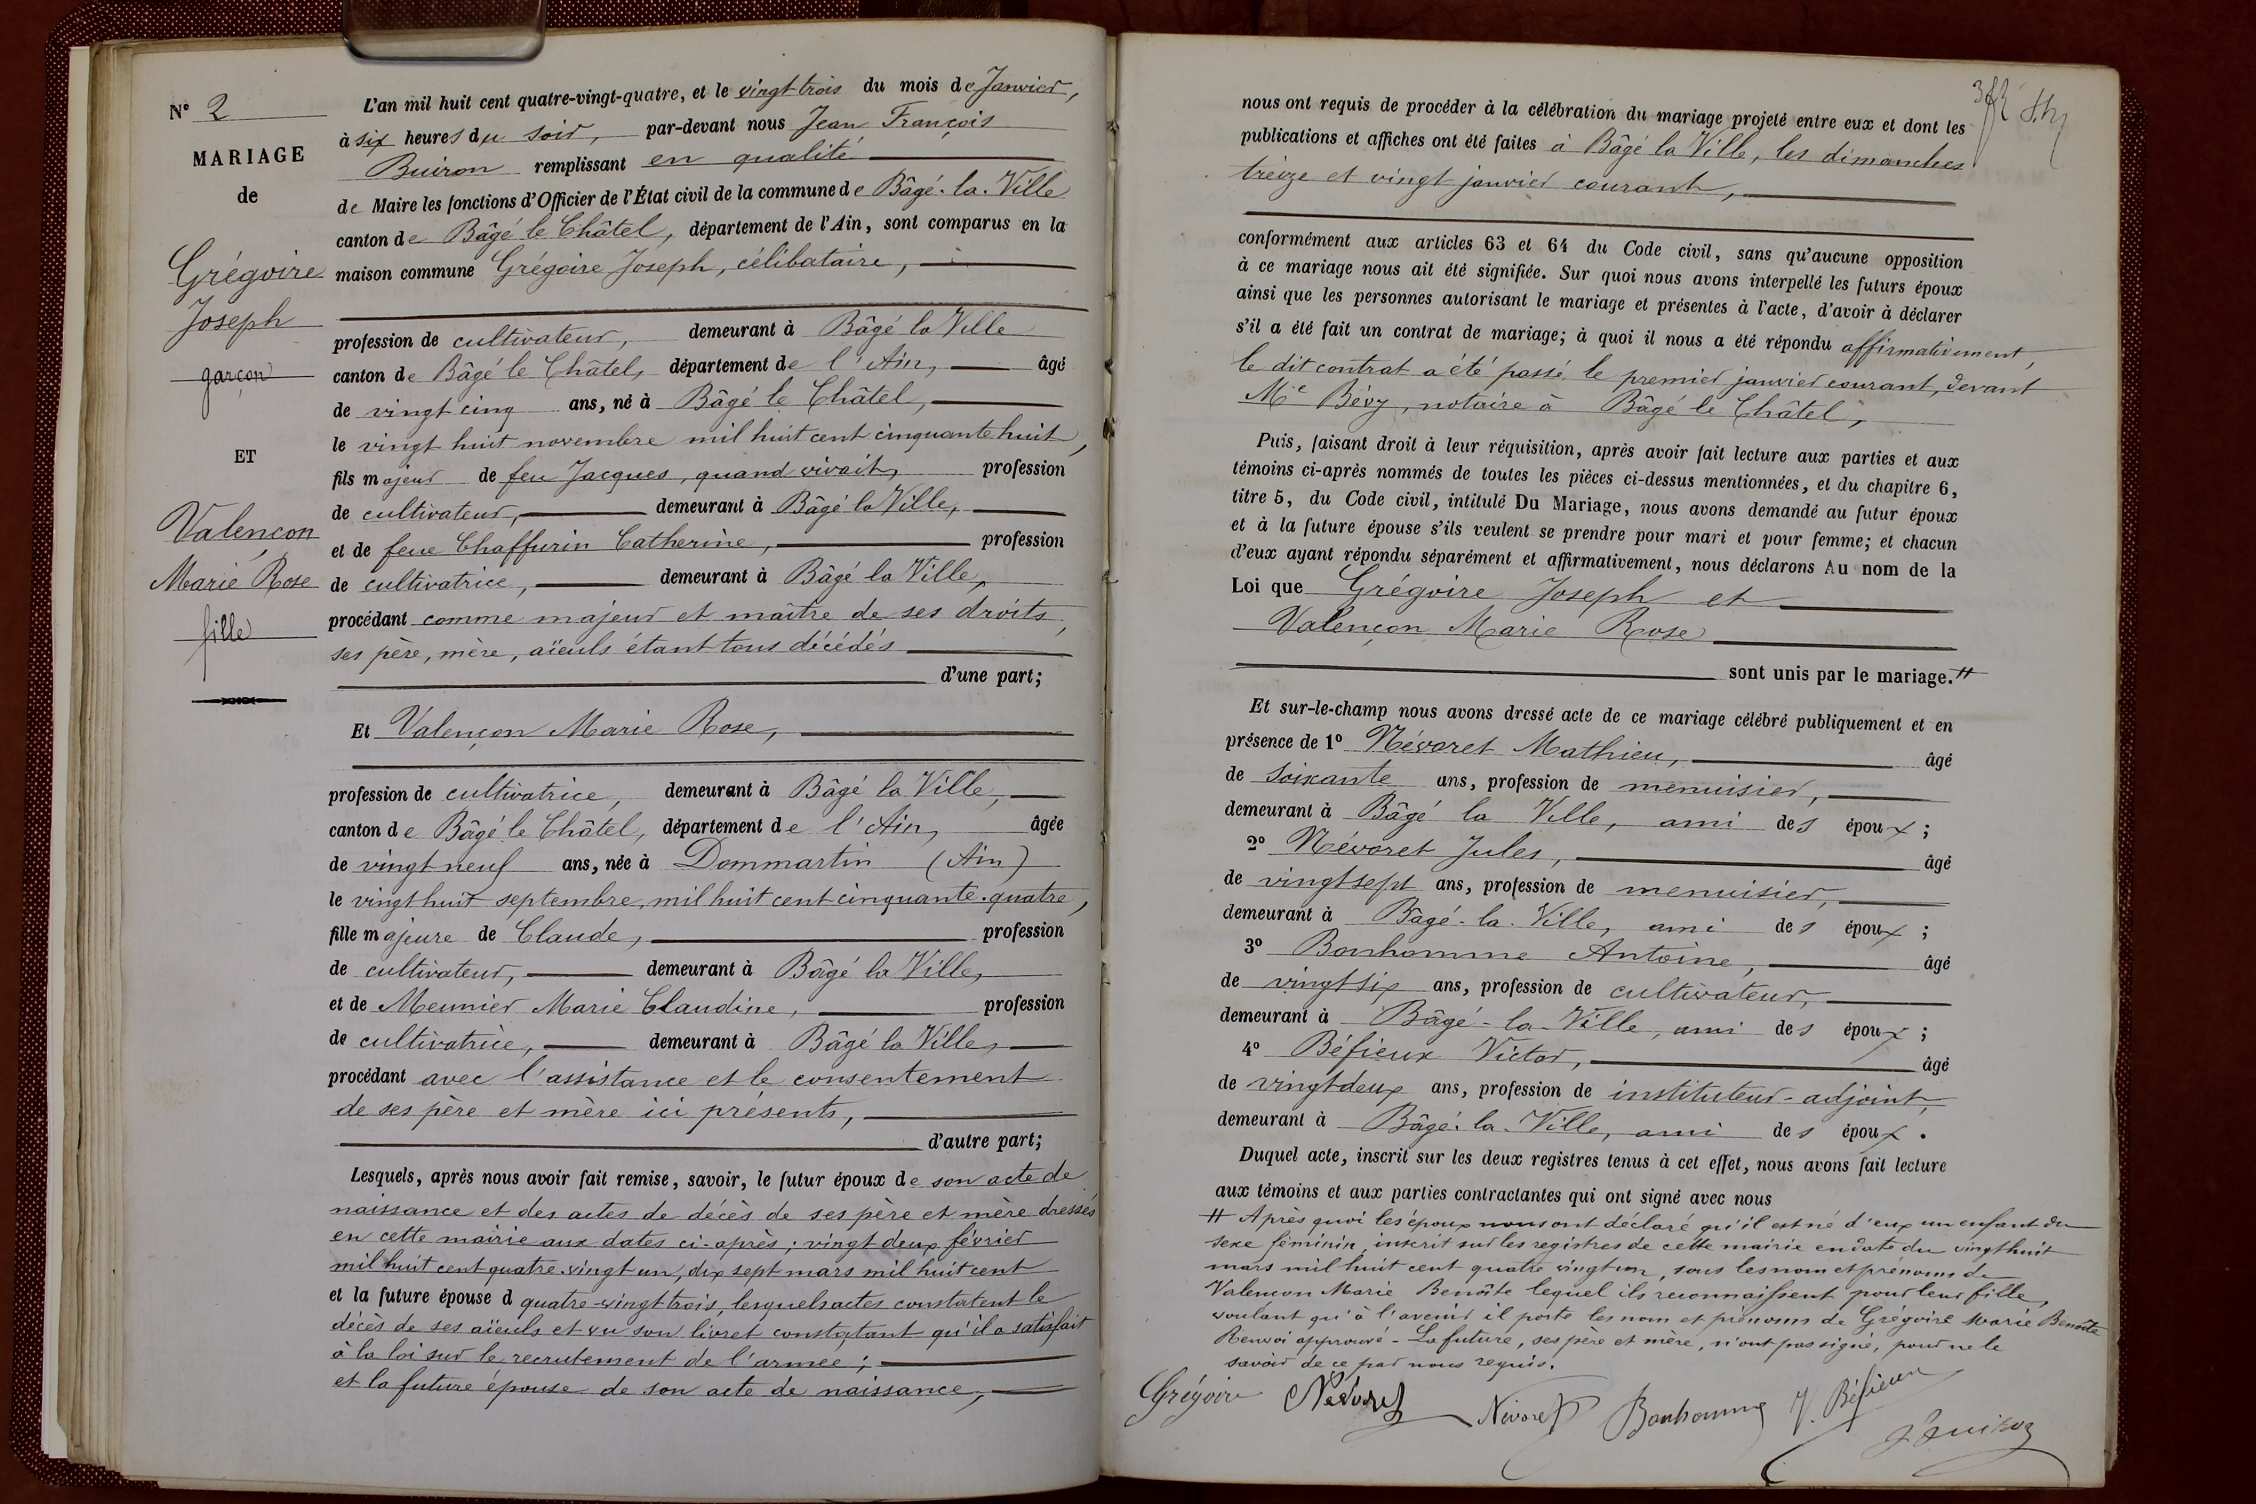 N° 2
MARIAGE
de
Grégoire
Joseph
garçon
ET
Valençon
Marie Rose
fille
L'an mil huit cent quatre-vingt-quatre, et le vingt trois du mois de Janvier,
à six heures du soir, par-devant nous Jean François
Buiron remplissant en qualité
de Maire les fonctions d'Officier de l'État civil de la commune de Bâgé-la-Ville
canton de Bâgé le Châtel, département de l'Ain, sont comparus en la
maison commune Grégoire Joseph, célibataire,
profession de cultivateur, demeurant à Bâgé la Ville
canton de Bâgé le Châtel, département de l'Ain, âgé
de vingt cinq ans, né à Bâgé le Châtel,
le vingt huit novembre mil huit cent cinquante huit,
fils majeur de feu Jacques, quand vivait, profession
de cultivateur, demeurant à Bâgé la Ville,
et de feue Chaffurin Catherine, profession
de cultivatrice, demeurant à Bâgé la Ville,
procédant comme majeur et maître de ses droits,
ses père, mère, aïeuls étant tous décédés
d'une part;
Et Valençon Marie Rose,
profession de cultivatrice, demeurant à Bâgé la Ville,
canton de Bâgé le Châtel, département de l'Ain, âgée
de vingt neuf ans, née à Dommartin (Ain)
le vingt huit septembre, mil huit cent cinquante-quatre,
fille majeure de Claude, profession
de cultivateur, demeurant à Bâgé la Ville,
et de Meunier Marie Claudine, profession
de cultivatrice, demeurant à Bâgé la Ville,
procédant avec l'assistance et le consentement
de ses père et mère ici présents,
d'autre part;
Lesquels, après nous avoir fait remise, savoir, le futur époux de son acte de
naissance et des actes de décès de ses père et mère dressés
en cette mairie aux dates ci-après; vingt deux février
mil huit cent quatre vingt un, dix sept mars mil huit cent
et la future épouse d quatre-vingt trois, lesquels actes constatent le
décès de ses aïeuls et vu son livret constatant qu'il a satisfait
à la loi sur le recrutement de l'armée;
et la future épouse de son acte de naissance,
nous ont requis de procéder à la célébration du mariage projeté entre eux et dont les
publications et affiches ont été faites à Bâgé la Ville, les dimanches
treize et vingt janvier courant,
conformément aux articles 63 et 64 du Code civil, sans qu'aucune opposition
à ce mariage nous ait été signifiée. Sur quoi nous avons interpellé les futurs époux
ainsi que les personnes autorisant le mariage et présentes à l'acte, d'avoir à déclarer
s'il a été fait un contrat de mariage; à quoi il nous a été répondu affirmativement,
le dit contrat a été passé le premier janvier courant, devant
Me Bévy, notaire à Bâgé le Châtel,
Puis, faisant droit à leur réquisition, après avoir fait lecture aux parties et aux
témoins ci-après nommés de toutes les pièces ci-dessus mentionnées, et du chapitre 6,
titre 5, du Code civil, intitulé Du Mariage, nous avons demandé au futur époux
et à la future épouse s'ils veulent se prendre pour mari et pour femme; et chacun
d'eux ayant répondu séparément et affirmativement, nous déclarons Au nom de la
Loi que Grégoire Joseph et
Valençon Marie Rose
sont unis par le mariage.#
Et sur-le-champ nous avons dressé acte de ce mariage célébré publiquement et en
présence de 1° Névoret Mathieu, âgé
de soixante ans, profession de menuisier,
demeurant à Bâgé la Ville, ami des époux;
2° Névoret Jules, âgé
de vingt sept ans, profession de menuisier,
demeurant à Bâgé-la-Ville, ami des époux;
3° Bonhomme Antoine, âgé
de vingt six ans, profession de cultivateur,
demeurant à Bâgé-la-Ville, ami des époux;
4° Béfieux Victor, âgé
de vingt deux ans, profession de instituteur-adjoint,
demeurant à Bâgé-la-Ville, ami des époux.
Duquel acte, inscrit sur les deux registres tenus à cet effet, nous avons fait lecture
aux témoins et aux parties contractantes qui ont signé avec nous
# Après quoi les époux nous ont déclaré qu'il est né d'eux un enfant du
sexe féminin, inscrit sur les registres de cette mairie en date du vingt huit
mars mil huit cent quatre vingt un, sous les nom et prénoms de
Valençon Marie Benoîte lequel ils reconnaissent pour leur fille,
voulant qu'à l'avenir il porte les nom et prénoms de Grégoire Marie Benoîte
Renvoi approuvé - La future, ses père et mère, n'ont pas signé, pour ne le
savoir de ce par nous requis.
Grégoire Névoret Névoret Bonhomme V. Béfieux
J. Buiron